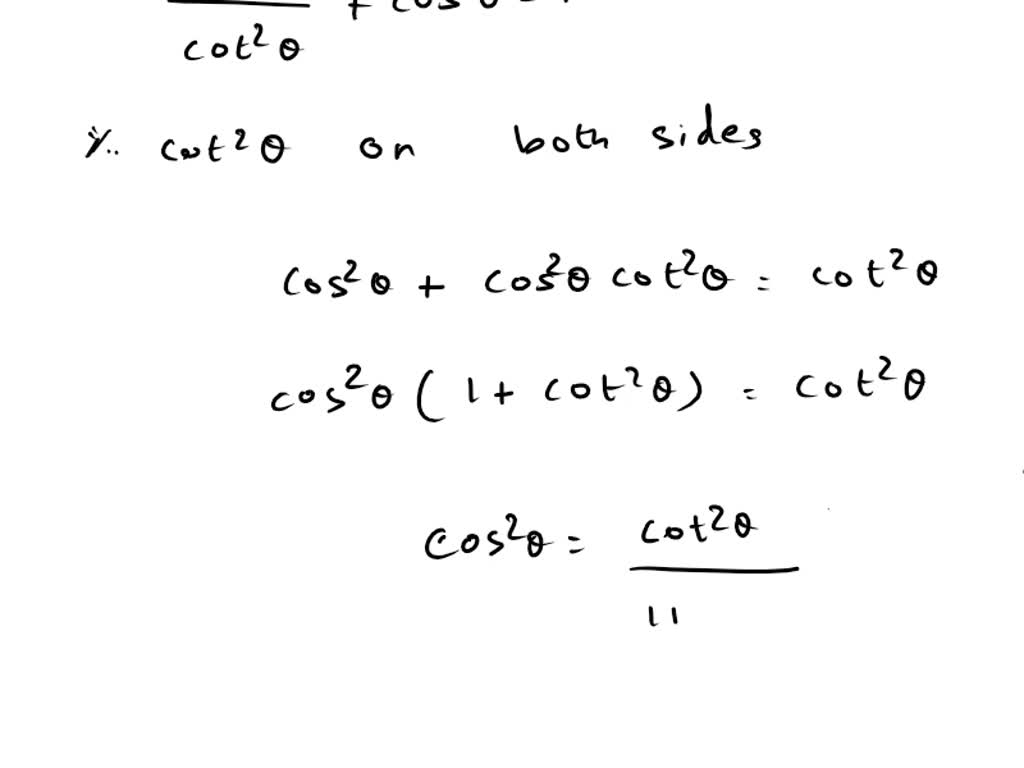 cot²θ
cot²θ on both sides
cos²θ + cos²θ cot²θ = cot²θ
cos²θ ( 1 + cot²θ ) = cot²θ
cos²θ = cot²θ